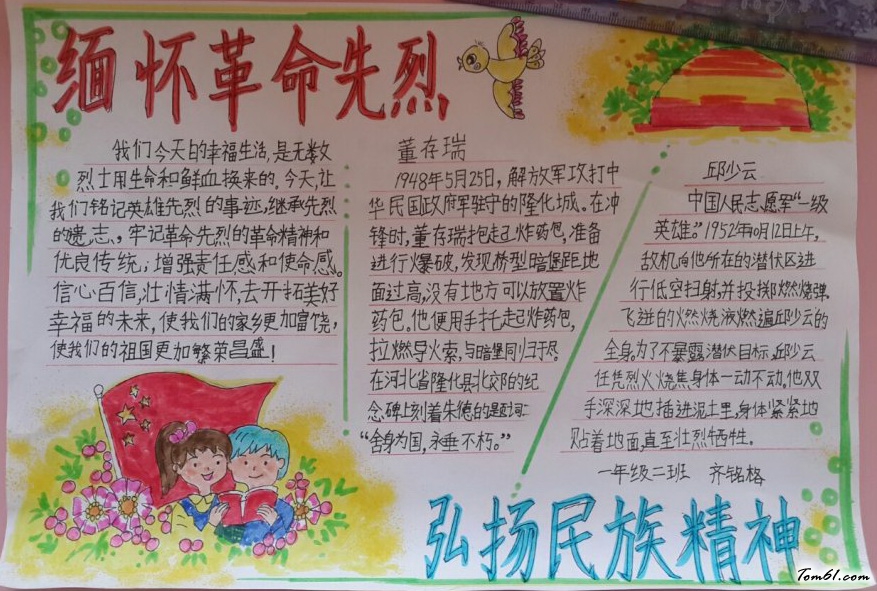 缅怀革命先烈
我们今天的幸福生活,是无数
烈士用生命和鲜血换来的。今天,让
我们铭记英雄先烈的事迹,继承先烈
的遗志,牢记革命先烈的革命精神和
优良传统;增强责任感和使命感。
信心百信,壮情满怀,去开拓美好
幸福的未来,使我们的家乡更加富饶,
使我们的祖国更加繁荣昌盛!
董存瑞
1948年5月25日,解放军攻打中
华民国政府军驻守的隆化城。在冲
锋时,董存瑞抱起炸药包,准备
进行爆破,发现桥型暗堡距地
面过高,没有地方可以放置炸
药包。他便用手托起炸药包,
拉燃导火索,与暗堡同归于尽。
在河北省隆化县北郊的纪
念碑上刻着朱德的题词:
“舍身为国,永垂不朽。”
邱少云
中国人民志愿军“一级
英雄。”1952年10月12日上午,
敌机向他所在的潜伏区进
行低空扫射,并投掷燃烧弹。
飞迸的火燃烧液燃遍邱少云的
全身,为了不暴露潜伏目标,邱少云
任凭烈火烧焦身体一动不动。他双
手深深地插进泥土里,身体紧紧地
贴着地面,直至壮烈牺牲。
一年级二班 齐铭格
弘扬民族精神
Tom61.com